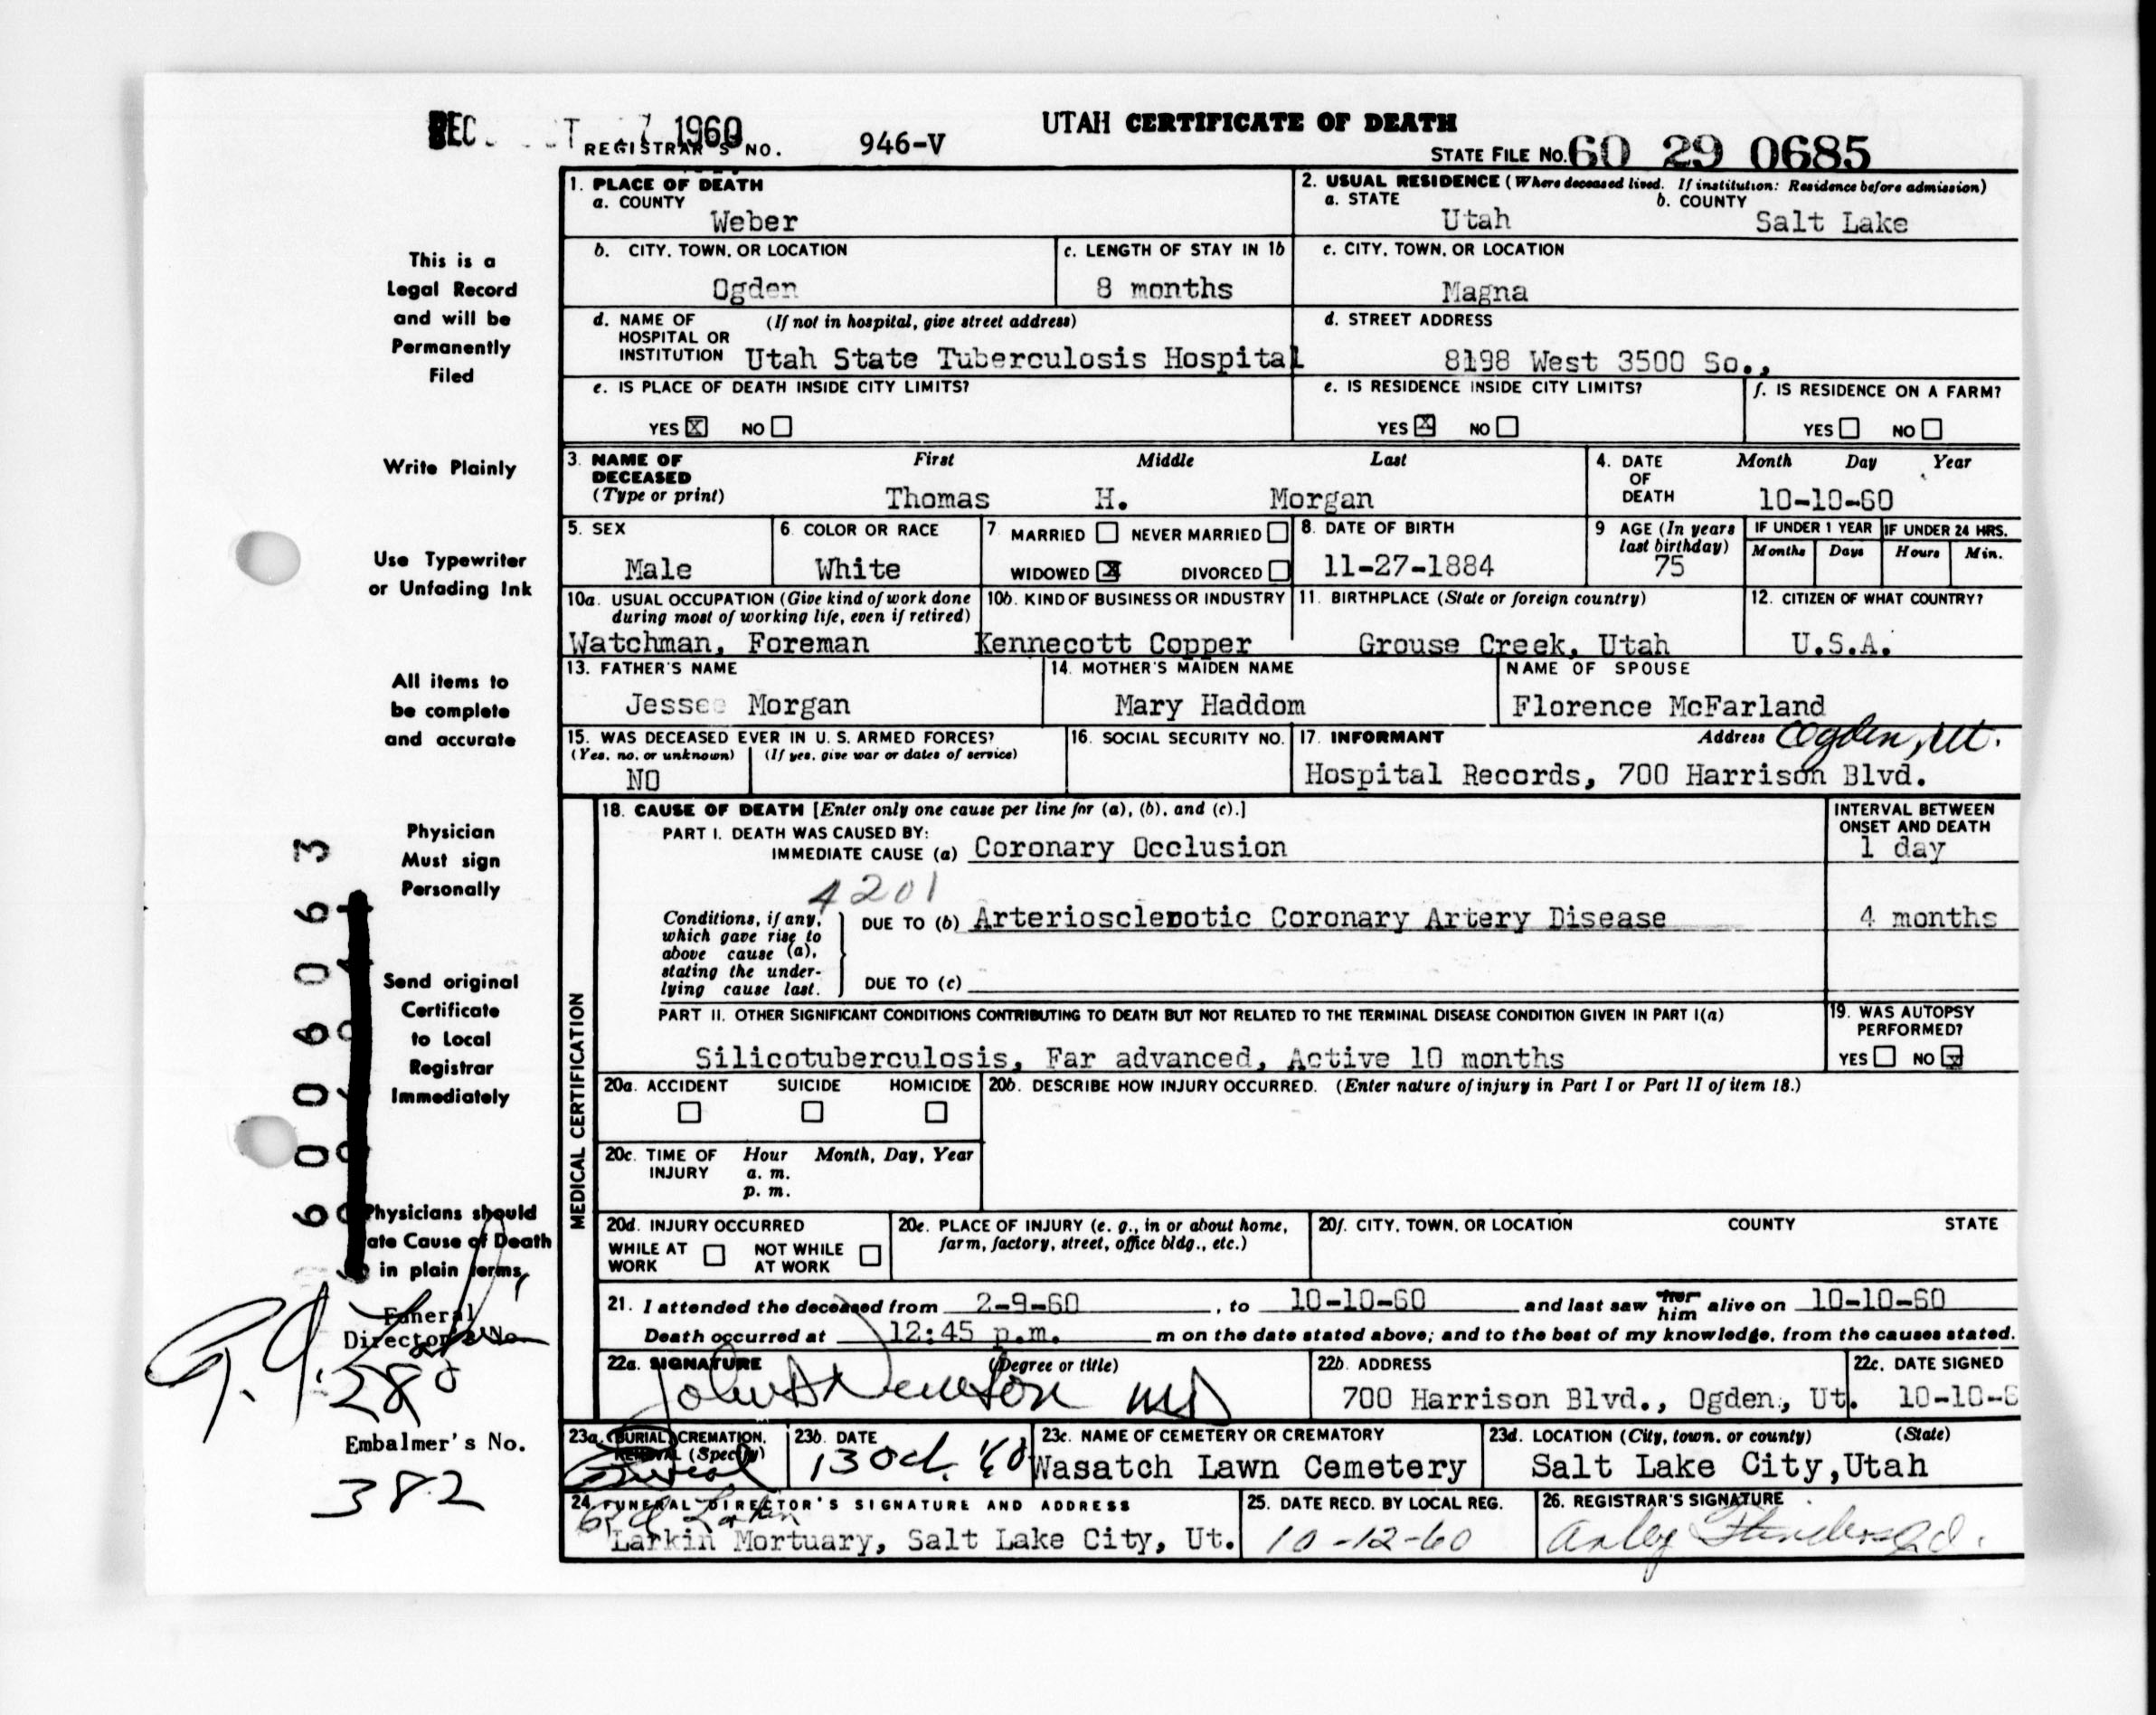 REC OCT 7 1960
REGISTRAR'S NO. 946-V
UTAH CERTIFICATE OF DEATH
STATE FILE NO. 60 29 0685
1. PLACE OF DEATH
a. COUNTY
Weber
2. USUAL RESIDENCE (Where deceased lived. If institution: Residence before admission)
a. STATE b. COUNTY
Utah Salt Lake
b. CITY, TOWN, OR LOCATION
Ogden
c. LENGTH OF STAY IN 1b
8 months
c. CITY, TOWN, OR LOCATION
Magna
d. NAME OF (If not in hospital, give street address)
HOSPITAL OR
INSTITUTION Utah State Tuberculosis Hospital
d. STREET ADDRESS
8198 West 3500 So.,
e. IS PLACE OF DEATH INSIDE CITY LIMITS?
YES X NO
e. IS RESIDENCE INSIDE CITY LIMITS?
YES X NO
f. IS RESIDENCE ON A FARM?
YES NO
3. NAME OF DECEASED
(Type or print)
First Middle Last
Thomas H. Morgan
4. DATE OF DEATH
Month Day Year
10-10-60
5. SEX
Male
6. COLOR OR RACE
White
7 MARRIED NEVER MARRIED
WIDOWED X DIVORCED
8. DATE OF BIRTH
11-27-1884
9 AGE (In years last birthday)
75
IF UNDER 1 YEAR
Months Days
IF UNDER 24 HRS.
Hours Min.
10a. USUAL OCCUPATION (Give kind of work done
during most of working life, even if retired)
Watchman, Foreman
10b. KIND OF BUSINESS OR INDUSTRY
Kennecott Copper
11. BIRTHPLACE (State or foreign country)
Grouse Creek, Utah
12. CITIZEN OF WHAT COUNTRY?
U.S.A.
13. FATHER'S NAME
Jessee Morgan
14. MOTHER'S MAIDEN NAME
Mary Haddom
NAME OF SPOUSE
Florence McFarland
15. WAS DECEASED EVER IN U. S. ARMED FORCES?
(Yes, no, or unknown) (If yes, give war or dates of service)
NO
16. SOCIAL SECURITY NO.
17. INFORMANT Address Ogden, Ut.
Hospital Records, 700 Harrison Blvd.
MEDICAL CERTIFICATION
18. CAUSE OF DEATH [Enter only one cause per line for (a), (b), and (c).]
PART I. DEATH WAS CAUSED BY:
IMMEDIATE CAUSE (a) Coronary Occlusion
INTERVAL BETWEEN
ONSET AND DEATH
1 day
4201
Conditions, if any,
which gave rise to
above cause (a),
stating the under-
lying cause last.
DUE TO (b) Arteriosclerotic Coronary Artery Disease 4 months
DUE TO (c)
PART II. OTHER SIGNIFICANT CONDITIONS CONTRIBUTING TO DEATH BUT NOT RELATED TO THE TERMINAL DISEASE CONDITION GIVEN IN PART I(a)
Silicotuberculosis, Far advanced, Active 10 months
19. WAS AUTOPSY
PERFORMED?
YES NO X
20a. ACCIDENT SUICIDE HOMICIDE
20b. DESCRIBE HOW INJURY OCCURRED. (Enter nature of injury in Part I or Part II of item 18.)
20c. TIME OF INJURY
Hour Month, Day, Year
a. m.
p. m.
20d. INJURY OCCURRED
WHILE AT WORK NOT WHILE AT WORK
20e. PLACE OF INJURY (e. g., in or about home,
farm, factory, street, office bldg., etc.)
20f. CITY, TOWN, OR LOCATION COUNTY STATE
21. I attended the deceased from 2-9-60, to 10-10-60 and last saw her him alive on 10-10-60
Death occurred at 12:45 p.m. m on the date stated above; and to the best of my knowledge, from the causes stated.
22a. SIGNATURE (Degree or title)
John A Newton MD
22b. ADDRESS
700 Harrison Blvd., Ogden, Ut.
22c. DATE SIGNED
10-10-6
23a. BURIAL, CREMATION,
REMOVAL (Specify)
Burial
23b. DATE
13 Oct. '60
23c. NAME OF CEMETERY OR CREMATORY
Wasatch Lawn Cemetery
23d. LOCATION (City, town, or county) (State)
Salt Lake City, Utah
24. FUNERAL DIRECTOR'S SIGNATURE AND ADDRESS
Larkin
Larkin Mortuary, Salt Lake City, Ut.
25. DATE RECD. BY LOCAL REG.
10-12-60
26. REGISTRAR'S SIGNATURE
This is a
Legal Record
and will be
Permanently
Filed
Write Plainly
Use Typewriter
or Unfading Ink
All items to
be complete
and accurate
Physician
Must sign
Personally
Send original
Certificate
to Local
Registrar
Immediately
Physicians should
ate Cause of Death
in plain terms,
Funeral
Director's No.
280
Embalmer's No.
382
6006063